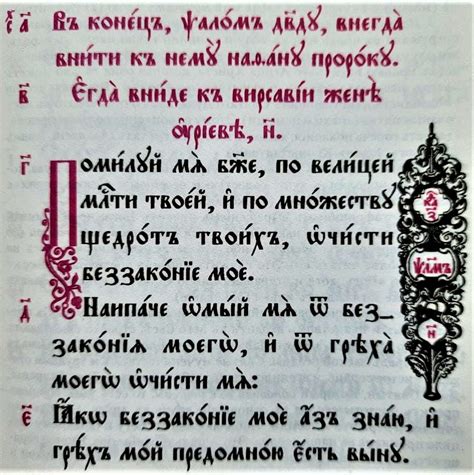 сⷯ а҃ Въ коне́цъ, ѱало́мъ дв҃ду, внегда̀
вни́ти къ нему̀ наѳа́ну проро́ку.
в҃ Є҆гда̀ вни́де къ вирса́вїи женѣ̀
ᲂу҆рі́евѣ, н҃.
г҃ Поми́луй мѧ̀ бж҃е, по вели́цей
млⷭ҇ти твое́й, и҆ по мно́жеству
щедро́тъ твои́хъ, ѡ҆чи́сти
беззако́нїе моѐ.
д҃ Наипа́че ѡ҆мы́й мѧ̀ ѿ без_
зако́нїѧ моегѡ̀, и҆ ѿ грѣха̀
моегѡ̀ ѡ҆чи́сти мѧ̀:
є҃ Ꙗ҆́кѡ беззако́нїе моѐ а҆́зъ зна́ю, и҆
грѣ́хъ мо́й предомно́ю є҆́сть вы́ну.
ѱал́мъ
н҃